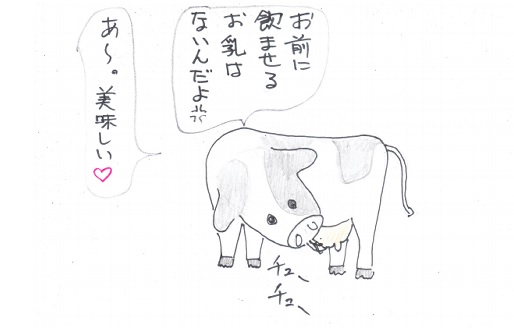 お前に
飲ませる
お乳は
ないんだよ💢
あ〜。美味しい♡
チュ、
チュ、